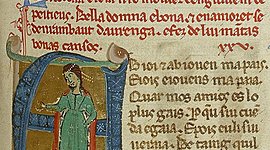 peitieus. Bella domna e bona. et enamoret se
den rambaut daurenga. et fez de lui matas
bonas cansos.
XXV.
Ab ioi et ab ioven ma pais.
E iois e iovens ma paia.
Quar mos amics es lo
plus gais. Per quieu sui cu
eta gaia. E pois eu li sui
veraia. Be taing quil